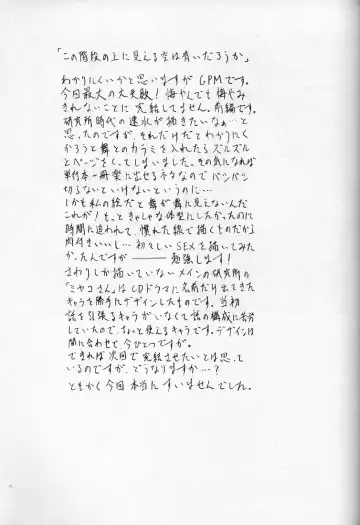 「この階段の上に見える空は青いだろうか」
わかりにくいかと思いますがGPMです。
今回最大の大失敗！悔やんでも悔やみ
きれないことに完結してません。前編です。
研究所時代の速水が描きたいなぁ…と
思ったのですが、それだけだとわかりにく
かろうと舞とのカラミを入れたらズルズル
とページをくってしまいました。その気になれば
単行本一冊楽に出せるネタなのでバンバン
切らないといけないというのに…
しかも私の絵だと舞が舞に見えないんだ
これが！もっときゃしゃな体型にしたかったのに
時間に追われて、慣れた線で描くものだから
肉付きいいし…初々しいSEXを描いてみた
かったんですが――勉強します！
さわりしか描いていないメインの研究所の
「ミヤコさん」はCDドラマに名前だけ出てきた
キャラを勝手にデザインしたものです。当初
話を引張るキャラがいなくて話の構成に苦労
していたので、ちょっと使えるキャラです。デザインは
間に合わせで、今ひとつですが。
できれば次回で完結させたいとは思って
いるのですが、どうなりますか…？
ともかく今回本当にすいませんでした。